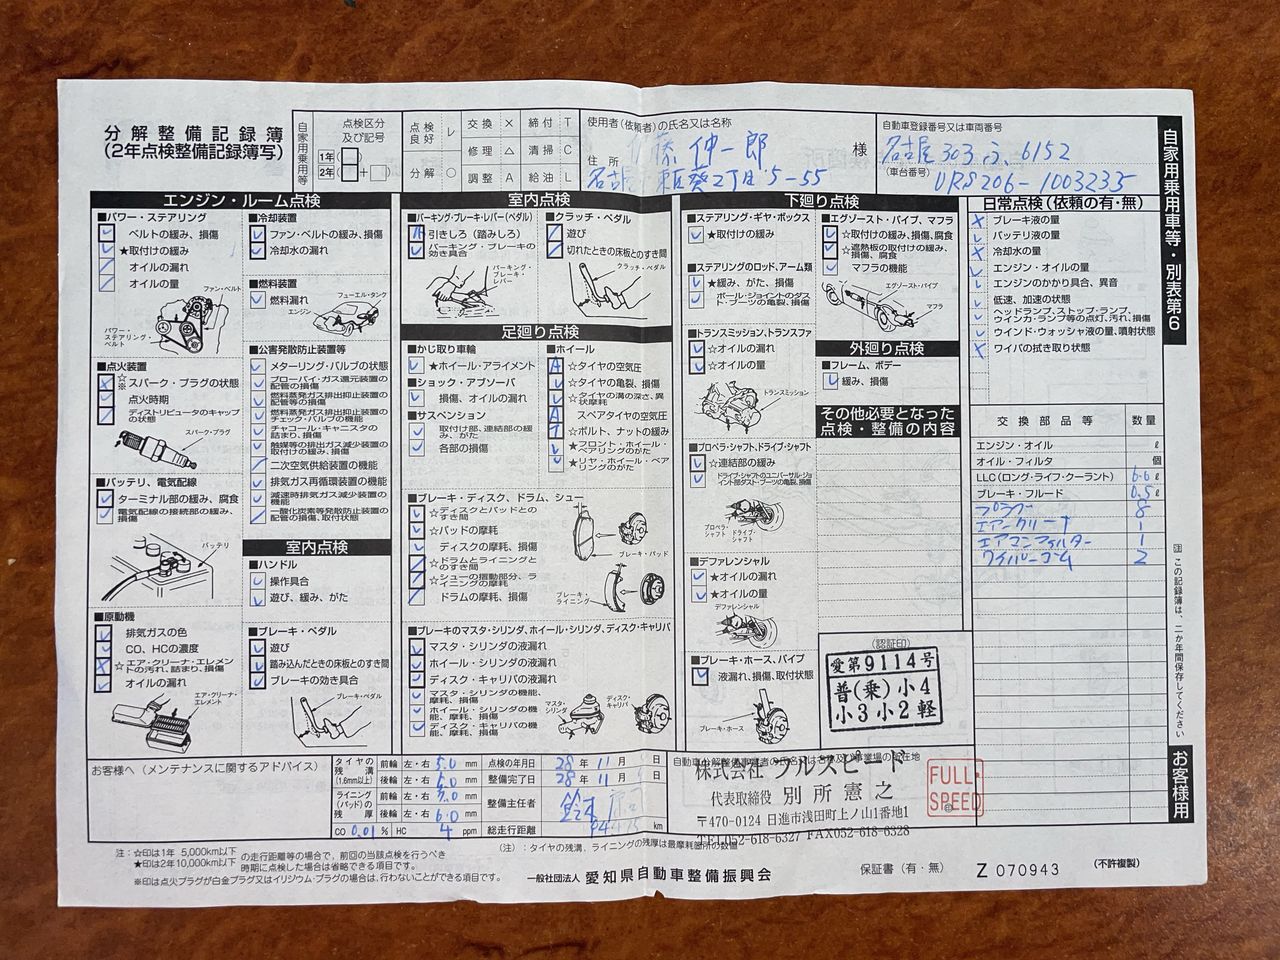 分解整備記録簿
(2年点検整備記録簿写)
自家用乗用等
点検区分及び記号
1年
2年 +
点検良好 レ
分解 ○
交換 × 締付 T
修理 △ 清掃 C
調整 A 給油 L
使用者(依頼者)の氏名又は名称
藤 伸一郎 様
住所
名古屋 東区葵2丁目5-55
自動車登録番号又は車両番号
名古屋 303 ふ 6152
(車台番号) URS206-1003235
自家用乗用車等・別表第6
エンジン・ルーム点検
■パワー・ステアリング
ベルトの緩み、損傷
★取付けの緩み
オイルの漏れ
オイルの量
ファン・ベルト
パワー・ステアリング・ベルト
■点火装置
☆※スパーク・プラグの状態
点火時期
ディストリビュータのキャップの状態
スパーク・プラグ
■バッテリ、電気配線
ターミナル部の緩み、腐食
電気配線の接続部の緩み、損傷
バッテリ
■原動機
排気ガスの色
CO、HCの濃度
☆エア・クリーナ・エレメントの汚れ、詰まり、損傷
オイルの漏れ
エア・クリーナ・エレメント
■冷却装置
ファン・ベルトの緩み、損傷
冷却水の漏れ
■燃料装置
燃料漏れ
フューエル・タンク
エンジン
■公害発散防止装置等
メターリング・バルブの状態
ブローバイ・ガス還元装置の配管の損傷
燃料蒸発ガス排出抑止装置の配管等の損傷
燃料蒸発ガス排出抑止装置のチェック・バルブの機能
チャコール・キャニスタの詰まり、損傷
触媒等の排出ガス減少装置の取付けの緩み、損傷
二次空気供給装置の機能
排気ガス再循環装置の機能
減速時排気ガス減少装置の機能
一酸化炭素等発散防止装置の配管の損傷、取付状態
室内点検
■ハンドル
操作具合
遊び、緩み、がた
■ブレーキ・ペダル
遊び
踏み込んだときの床板とのすき間
ブレーキの効き具合
ブレーキ・ペダル
室内点検
■パーキング・ブレーキ・レバー(ペダル)
引きしろ(踏みしろ)
パーキング・ブレーキの効き具合
パーキング・ブレーキ・レバー
■クラッチ・ペダル
遊び
切れたときの床板とのすき間
クラッチ・ペダル
足廻り点検
■かじ取り車輪
★ホイール・アライメント
■ショック・アブソーバ
損傷、オイルの漏れ
■サスペンション
取付け部、連結部の緩み、がた
各部の損傷
■ホイール
☆タイヤの空気圧
☆タイヤの亀裂、損傷
☆タイヤの溝の深さ、異状摩耗
スペアタイヤの空気圧
☆ボルト、ナットの緩み
★フロント・ホイール・ベアリングのがた
★リヤ・ホイール・ベアリングのがた
■ブレーキ・ディスク、ドラム、シュー
☆ディスクとパッドとのすき間
☆パッドの摩耗
ディスクの摩耗、損傷
☆ドラムとライニングとのすき間
☆シューの摺動部分、ライニングの摩耗
ドラムの摩耗、損傷
ブレーキ・パッド
ブレーキ・ライニング
■ブレーキのマスタ・シリンダ、ホイール・シリンダ、ディスク・キャリパ
マスタ・シリンダの液漏れ
ホイール・シリンダの液漏れ
ディスク・キャリパの液漏れ
マスタ・シリンダの機能、摩耗、損傷
ホイール・シリンダの機能、摩耗、損傷
ディスク・キャリパの機能、摩耗、損傷
マスタ・シリンダ
ディスク・キャリパ
下廻り点検
■ステアリング・ギヤ・ボックス
★取付けの緩み
■ステアリングのロッド、アーム類
★緩み、がた、損傷
ボール・ジョイントのダスト・ブーツの亀裂、損傷
■トランスミッション、トランスファ
☆オイルの漏れ
☆オイルの量
トランスミッション
■プロペラ・シャフト、ドライブ・シャフト
☆連結部の緩み
ドライブ・シャフトのユニバーサル・ジョイント部ダスト・ブーツの亀裂、損傷
プロペラ・シャフト
ドライブ・シャフト
■デファレンシャル
★オイルの漏れ
★オイルの量
デファレンシャル
■ブレーキ・ホース、パイプ
液漏れ、損傷、取付状態
ブレーキ・ホース
■エグゾースト・パイプ、マフラ
☆取付けの緩み、損傷、腐食
☆遮熱板の取付けの緩み、損傷、腐食
マフラの機能
エグゾースト・パイプ
マフラ
外廻り点検
■フレーム、ボデー
緩み、損傷
その他必要となった点検・整備の内容
(認証印)
愛第9114号
普(乗)小4
小3小2軽
日常点検(依頼の有・無)
ブレーキ液の量
バッテリ液の量
冷却水の量
エンジン・オイルの量
エンジンのかかり具合、異音
低速、加速の状態
ヘッドランプ、ストップ・ランプ、ウインカ・ランプ等の点灯、汚れ、損傷
ウインド・ウォッシャ液の量、噴射状態
ワイパの拭き取り状態
交換部品等 数量
エンジン・オイル ℓ
オイル・フィルタ 個
LLC(ロング・ライフ・クーラント) 6.6 ℓ
ブレーキ・フルード 0.5 ℓ
プラグ 8
エアクリーナ 1
エアコンフィルター 1
ワイパーゴム 2
注 この記録簿は、二か年間保存してください
お客様用
お客様へ(メンテナンスに関するアドバイス)
タイヤの残溝(1.6mm以上) 前輪 左・右 5.0 mm
後輪 左・右 5.0 mm
ライニング(パッド)の残厚 前輪 左・右 mm
後輪 左・右 6.0 mm
CO 0.01 % HC 4 ppm
点検の年月日 28年 11月 日
整備完了日 28年 11月 日
整備主任者 鈴木
総走行距離 km
自動車分解整備事業者の氏名又は名称及び事業場の所在地
株式会社 フルスピード
代表取締役 別所憲之
〒470-0124 日進市浅田町上ノ山1番地1
TEL052-618-6327 FAX052-618-6328
FULL SPEED 印
注:☆印は1年 5,000km以下
★印は2年10,000km以下
の走行距離等の場合で、前回の当該点検を行うべき時期に点検した場合は省略できる項目です。
※印は点火プラグが白金プラグ又はイリジウム・プラグの場合は、行わないことができる項目です。
(注):タイヤの残溝、ライニングの残厚は最摩耗箇所の数値
一般社団法人 愛知県自動車整備振興会
保証書(有・無)
Z 070943
(不許複製)